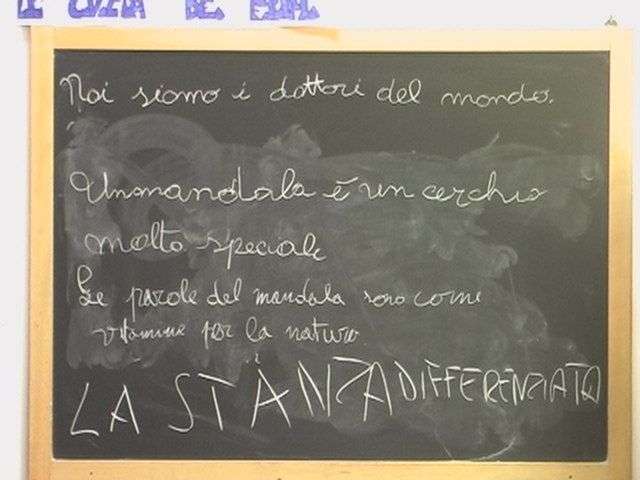 Noi siamo i dottori del mondo.
Un mandala è un cerchio
molto speciale
Le parole del mandala sono come
vitamine per la natura.
LA STANZA DIFFERENZIATA